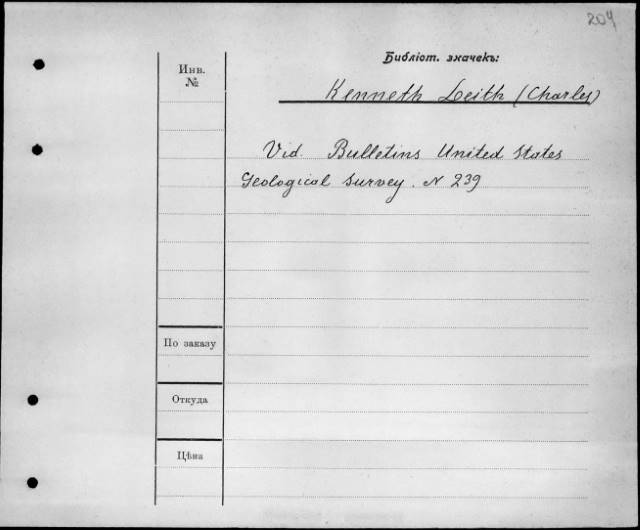 204
Библіот. значекъ:
Инв.
№
Kenneth Leith (Charles)
Vid. Bulletins United States
Geological Survey. N 239
По заказу
Откуда
Цѣна